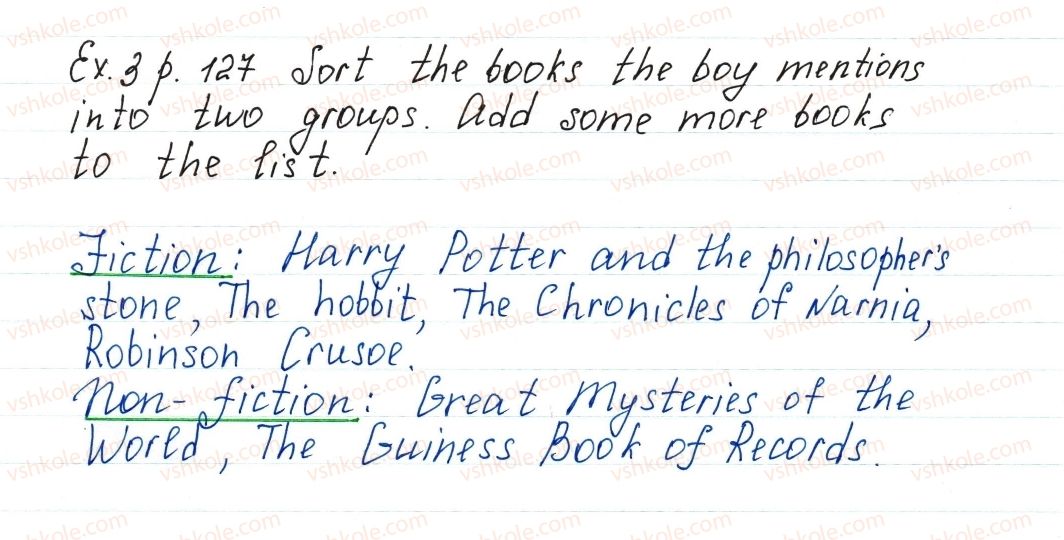 Ex. 3 p. 127 Sort the books the boy mentions
into two groups. Add some more books
to the list.
Fiction: Harry Potter and the philosopher's
stone, The hobbit, The Chronicles of Narnia,
Robinson Crusoe.
Non-fiction: Great Mysteries of the
World, The Guiness Book of Records.
vshkole.com